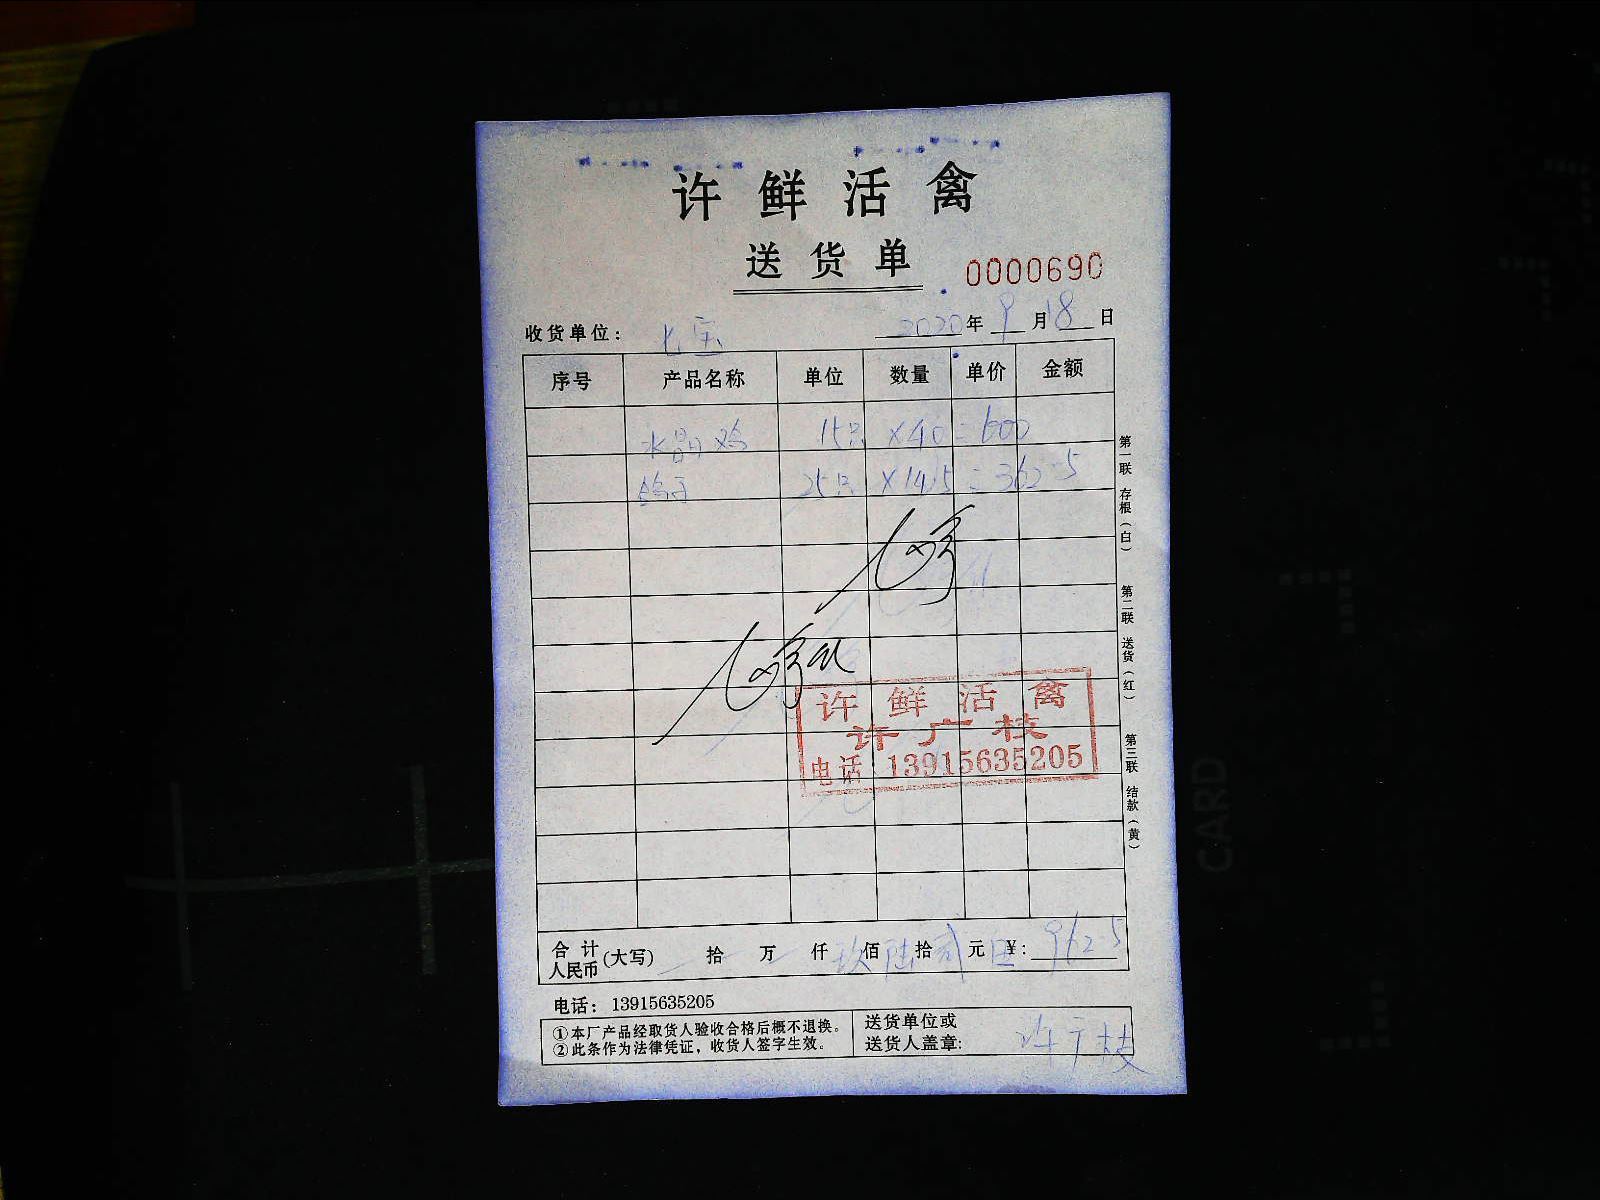 许鲜活禽
送货单
0000690
收货单位： 七宝 2020年9月18日
序号 产品名称 单位 数量 单价 金额
水晶鸡 15只 ×40=600
鸽子 25只 ×14.5=362.5
许鲜活禽
许广枝
电话 13915635205
合计人民币(大写) 拾 万 仟 玖佰 陆拾 贰元 伍 ¥: 962.5
电话： 13915635205
①本厂产品经取货人验收合格后概不退换。
②此条作为法律凭证，收货人签字生效。
送货单位或
送货人盖章: 许广枝
第一联 存根（白）
第二联 送货（红）
第三联 结款（黄）
CARD